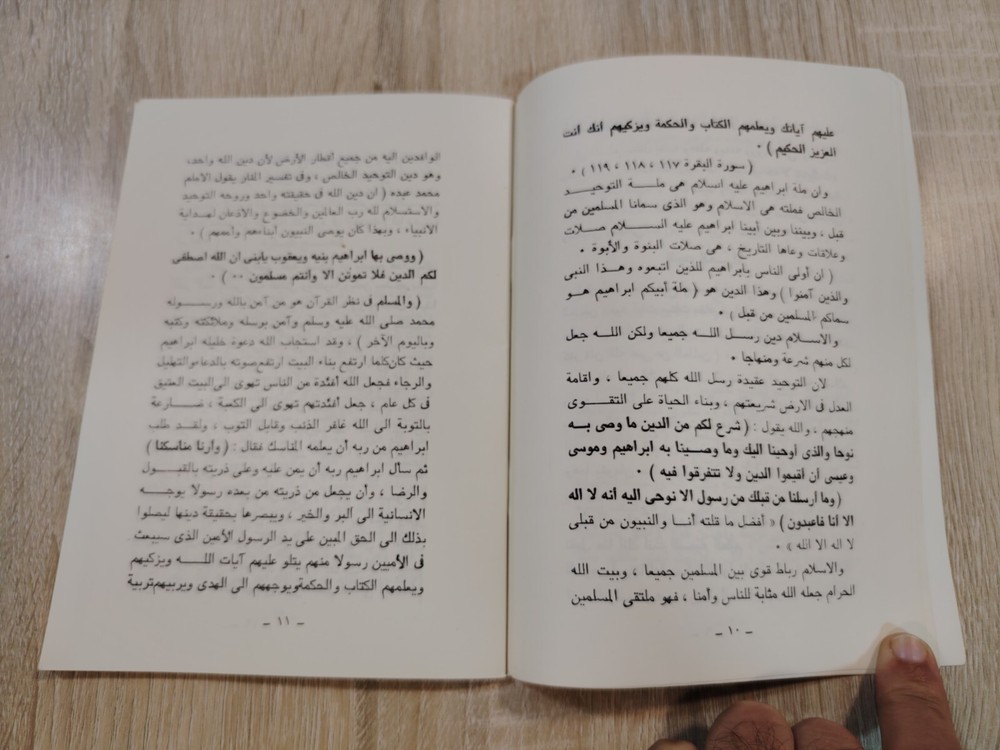 عليهم آياتك ويعلمهم الكتاب والحكمة ويزكيهم انك انت
العزيز الحكيم ) ٠
( سورة البقرة ١١٧ ، ١١٨ ، ١١٩ ) ٠
وان ملة ابراهيم عليه اسلام هى ملة التوحيد
الخالص فملته هى الاسلام وهو الذى سمانا المسلمين من
قبل ، وبيننا وبين أبينا ابراهيم عليه السلام صلات
وعلاقات وعاها التاريخ ، هى صلات البنوة والأبوة ٠
( ان أولى الناس بابراهيم للذين اتبعوه وهذا النبى
والذين آمنوا ) وهذا الدين هو ( ملة أبيكم ابراهيم هو
سماكم المسلمين من قبل ) ٠
والاسلام دين رسل الله جميعا ولكن الله جعل
لكل منهم شرعة ومنهاجا ٠
لان التوحيد عقيدة رسل الله كلهم جميعا ، واقامة
العدل فى الارض شريعتهم ، وبناء الحياة على التقوى
منهجهم ، والله يقول : ( شرع لكم من الدين ما وصى به
نوحا والذى أوحينا اليك وما وصينا به ابراهيم وموسى
وعيسى ان اقيموا الدين ولا تتفرقوا فيه ) ٠
( وما ارسلنا من قبلك من رسول الا نوحى اليه أنه لا اله
الا أنا فاعبدون ) « أفضل ما قلته أنا والنبيون من قبلى
لا اله الا الله » ٠
والاسلام رباط قوى بين المسلمين جميعا ، وبيت الله
الحرام جعله الله مثابة للناس وأمنا ، فهو ملتقى المسلمين
– ١٠ –
الوافدين اليه من جميع أقطار الأرض لأن دين الله واحد،
وهو دين التوحيد الخالص ، وفى تفسير المنار يقول الامام
محمد عبده ( ان دين الله فى حقيقته واحد وروحه التوحيد
والاستسلام لله رب العالمين والخضوع والاذعان لهداية
الانبياء ، وبهذا كان يوصى النبيون أبناءهم وأممهم ) ٠
( ووصى بها ابراهيم بنيه ويعقوب يابنى ان الله اصطفى
لكم الدين فلا تموتن الا وانتم مسلمون ٠٠ ) ٠
( والمسلم فى نظر القرآن هو من آمن بالله ورسوله
محمد صلى الله عليه وسلم وآمن برسله وملائكته وكتبه
وباليوم الآخر ) ، وقد استجاب الله دعوة خليله ابراهيم
حيث كان كلما ارتفع بناء البيت ارتفع صوته بالدعاء والتهليل
والرجاء فجعل الله أفئدة من الناس تهوى الى البيت العتيق
فى كل عام ، جعل أفئدتهم تهوى الى الكعبة ، ضارعة
بالتوبة الى الله غافر الذنب وقابل التوب ، ولقد طلب
ابراهيم من ربه أن يعلمه المناسك فقال : ( وأرنا مناسكنا )
ثم سأل ابراهيم ربه أن يمن عليه وعلى ذريته بالقبول
والرضا ، وأن يجعل من ذريته من بعده رسولا يوجه
الانسانية الى البر والخير ، ويبصرها بحقيقة دينها ليصلوا
بذلك الى الحق المبين على يد الرسول الأمين الذى سيبعث
فى الأميين رسولا منهم يتلو عليهم آيات الله ويزكيهم
ويعلمهم الكتاب والحكمة ويوجههم الى الهدى ويربيهم تربية
– ١١ –